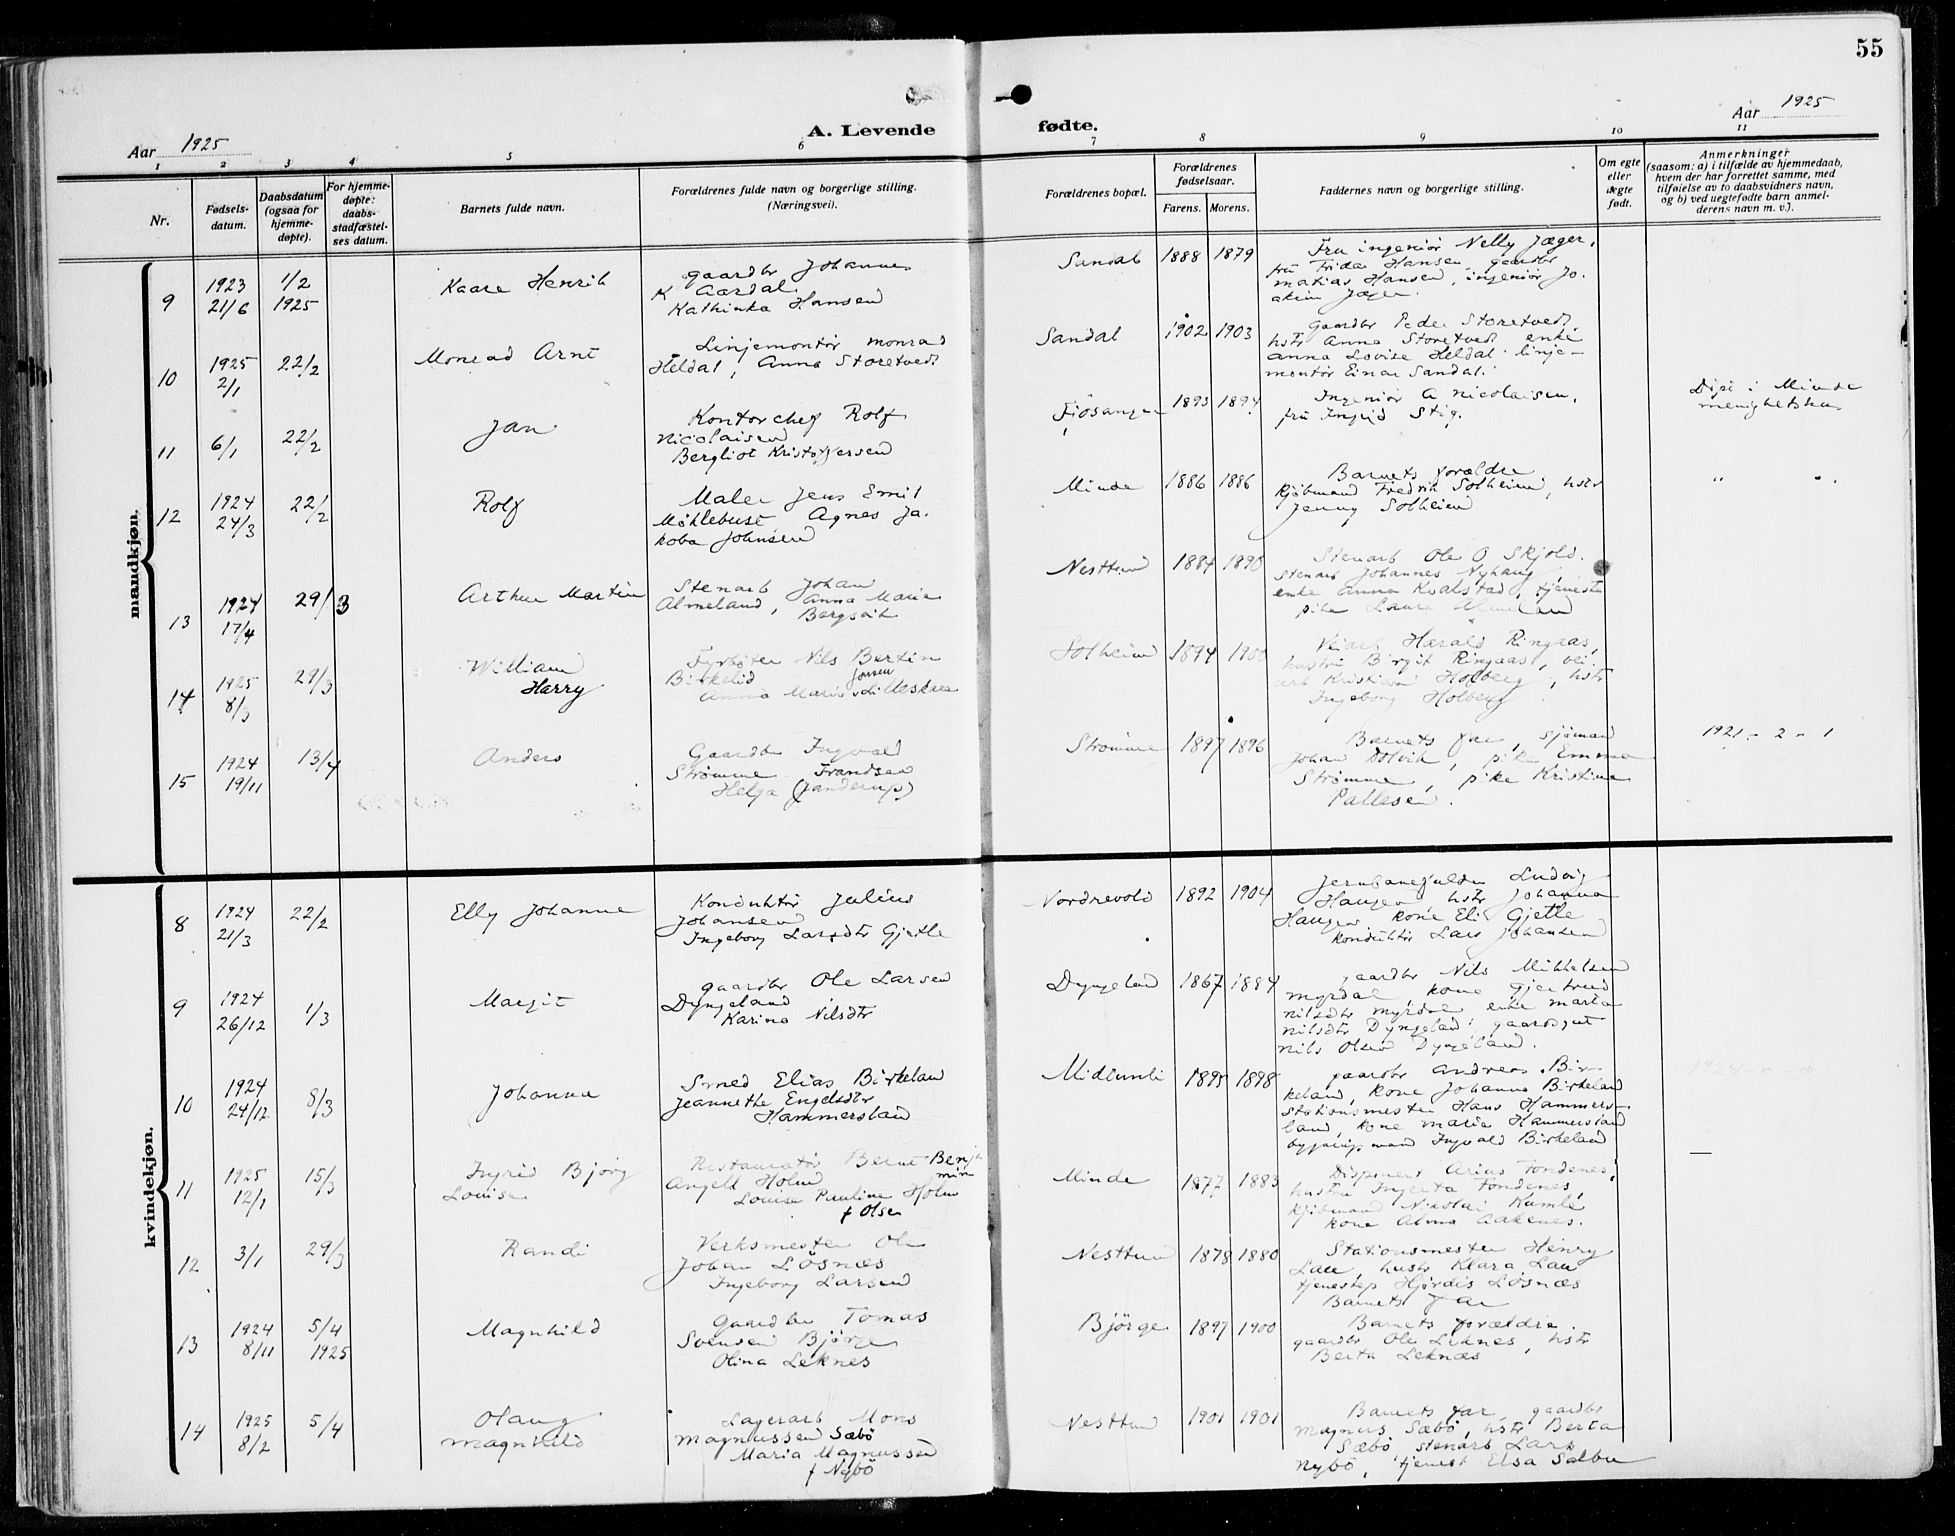 55
Aar 1925
A. Levende
fødte.
Aar 1925
1 2 3 4 5 6 7 8 9 10 11
Nr.
Fødsels-
datum.
Daabsdatum
(ogsaa for
hjemme-
døpte).
For hjemme-
døpte:
daabs-
stadfæstel-
ses datum.
Barnets fulde navn.
Forældrenes fulde navn og borgerlige stilling.
(Næringsvei).
Forældrenes bopæl.
Forældrenes
fødselsaar.
Farens. Morens.
Faddernes navn og borgerlige stilling.
Om egte
eller
uegte
født.
Anmerkninger
(saasom: a) i tilfælde av hjemmedaab,
hvem der har forrettet samme, med
tilføielse av to daabsvidners navn,
og b) ved uegtefødte barn anmel-
derens navn m. v.).
mandkjøn.
9
1923
21/6
1/2
1925
Kaare Henrik
gaardbr Johannes
K Aardal
Kathinka Hansen
Sandal 1888 1879
Fru ingeniør Nelly Jæger,
fru Frida Hansen, gaardbr
Matias Hansen, ingeniør Jo-
akim Jæger.
10
1925
2/1
22/2
Monrad Arnt
Linjemontør Monrad
Heldal, Anna Storetvedt
Sandal 1902 1903
Gaardbr Peder Storetvedt,
hstr Anna Storetvedt enke
Anna Lovise Heldal linje-
montør Einar Sandal.
11
6/1
22/2
Jan
Kontorchef Rolf
Nicolaisen
Bergliot Kristoffersen
Fjøsanger 1893 1894
Ingeniør A Nicolaisen,
fru Ingrid Stig.
Døpt i Minde
menighetshus
12
1924
24/3
22/2
Rolf
Maler Jens Emil
Møhlebust, Agnes Ja-
koba Johnsen
Minde 1886 1886
Barnets forældre
kjøbmand Fredrik Solheim, hstr
Jenny Solheim
" "
13
1924
17/4
29/3
Arthur Martin
Stenarb Johan
Almeland, Anna Marie
Bergsvik
Nesttun 1884 1890
Stenarb Ole O Skjold.
Stenarb Johannes Nyhaug,
enke Anna Kvalstad, tjeneste
pike Laura Almeland
14
1925
8/3
29/3
William
Harry
Fyrbøter Nils Bertin
Birkelid Jansen
Anna Marie Lilleskare
Solheim 1894 1900
Veiarb Harald Ringaas,
hustru Birgit Ringaas, vei-
arb Kristian Holberg, hstr
Ingeborg Holberg
15
1924
19/11
13/4
Anders
Gaardbr Ingvald
Strømme Frandsen
Helga (Janderup)
Strømme 1897 1896
Barnets far, sjømand
Johan Dolvik, pike Emma
Strømme, pike Kristine
Pallesen.
1921 - 2 - 1
kvindekjøn.
8
1924
21/3
22/2
Elly Johanne
Konduktør Julius
Johansen
Ingeborg Larsdtr Gjetle
Nordrevold 1892 1904
Ludvig
Haugen, hstr Johanna
Haugen, kone Eli Gjetle
konduktør Lars Johansen
9
1924
26/12
1/3
Margit
gaardbr Ole Larsen
Dyngeland
Karina Nilsdtr
Dyngeland 1867 1884
gaardbr Nils Mikkelsen
Myrdal kone Gjertrud
Nilsdtr Myrdal enke Marta
Nilsdtr Dyngeland gaardgut
Nils Olsen Dyngeland.
10
1924
24/12
8/3
Johanna
Smed Elias Birkeland
Jeannethe Engelsdtr
Hammersland
Midtunli 1895 1898
gaardbr Andreas Bir-
keland, kone Johanna Birkeland
Stationsmester Hans Hammers-
land, kone Marie Hammersland
Ingvald Birkeland
1924 - 0 - 0
11
1925
12/1
15/3
Ingrid Bjørg
Louise
Restauratør Bernt Benja
min
Angell Holm
Louise Pauline Holm
f Olsen
Minde 1877 1883
Disponent Arius Tondenes,
hustru Ingerta Tondenes,
kjøbmand Nikolai Kumle
kone Alma Aakenes.
—
12
3/1
29/3
Randi
Verksmester Ole
Johan Løsnæs
Ingeborg Larsen
Nesttun 1878 1880
Stationsmester Henry
Lau, hustr Klara Lau
tjenestep Hjørdis Løsnæs
Barnets far
13
1924
8/11
5/4
1925
Magnhild
Gaardbr Tomas
Svensen Bjørge
Olina Leknes
Bjørge 1897 1900
Barnets forældre.
gaardbr Ole Leknes, hstr
Berta Leknæs
14
1925
8/2
5/4
Olaug
Magnhild
Lagerarb Mons
Magnussen Sæbø
Maria Magnussen
f Nybø
Nesttun 1901 1901
Barnets far, gaardbr
Magnus Sæbø, hstr Berta
Sæbø, stenarb Lars
Nybø, tjenest Elsa Salbu